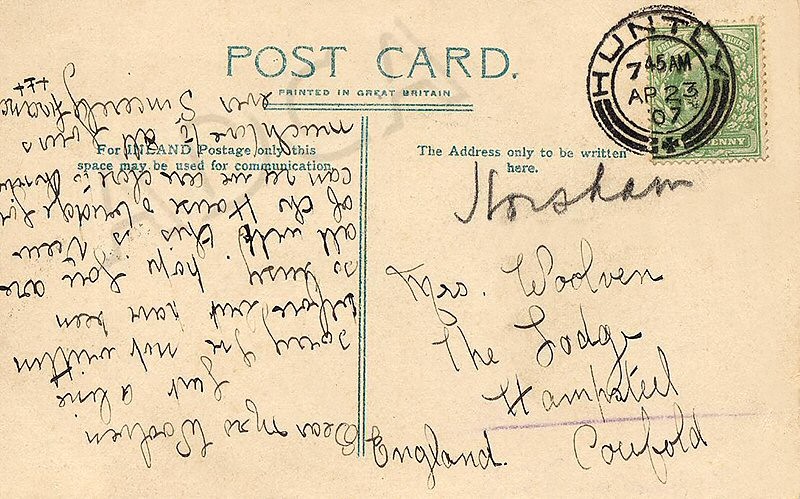 POST CARD.
PRINTED IN GREAT BRITAIN
HUNTLY
7 45AM
AP 23
07
PENNY
For INLAND Postage only this
space may be used for communication.
The Address only to be written
here.
Horsham
Mrs. Woolven
The Lodge
Hampsteel
Cowfold
England.
Dear Mrs Woolven
Just a line
sorry Ive not written
before but have been
so busy hope you are
all well. this is View
of the House & bridge
can se we there is
much love to all Yours
ever Sincerely
+++